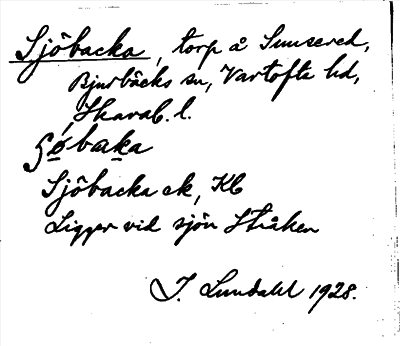 Sjöbacka, torp å Sunnered,
Bjurbäcks sn, Vartofta hd,
Skarab. l.
ʃǿbaka
Sjöbacka ek, Kb
Ligger vid sjön Stråken
J. Lundahl 1928.